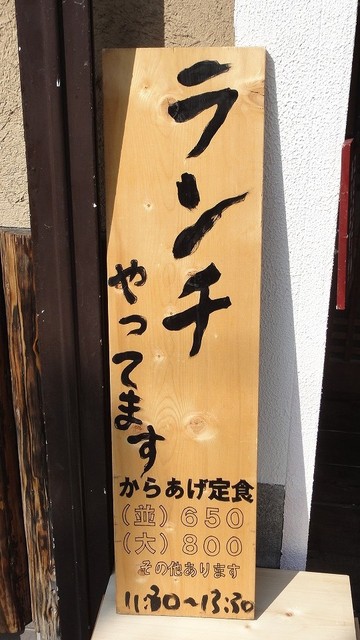 ランチ
やってます
からあげ定食
(並) 650
(大) 800
その他あります
11:30~13:30